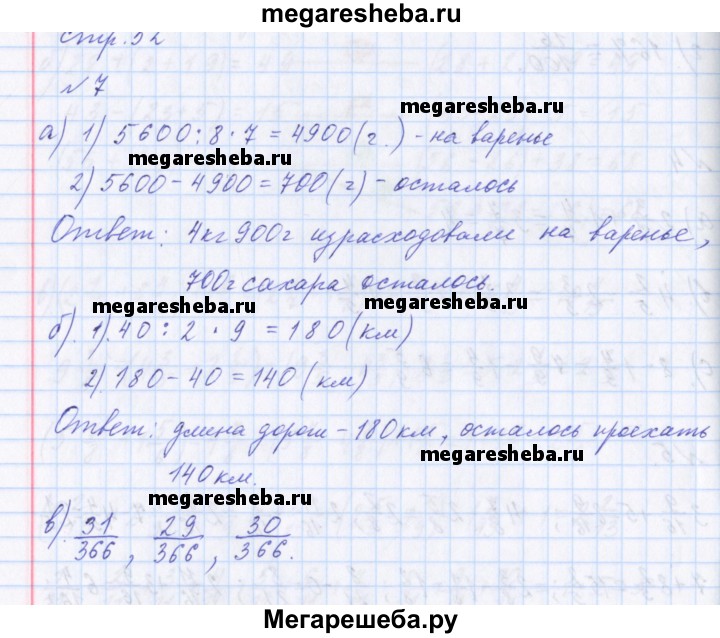 megaresheba.ru
стр.52
№7
megaresheba.ru
а) 1) 5600:8·7=4900(г.)-на варенье
megaresheba.ru
2) 5600-4900=700(г)-осталось
Ответ: 4кг900г израсходовали на варенье,
700г сахара осталось.
megaresheba.ru megaresheba.ru
б). 1). 40:2·9=180(км)
2) 180-40=140(км)
Ответ: длина дороги-180км, осталось проехать
megaresheba.ru
140км.
megaresheba.ru
в). 31/366, 29/366, 30/366.
Мегарешеба.ру